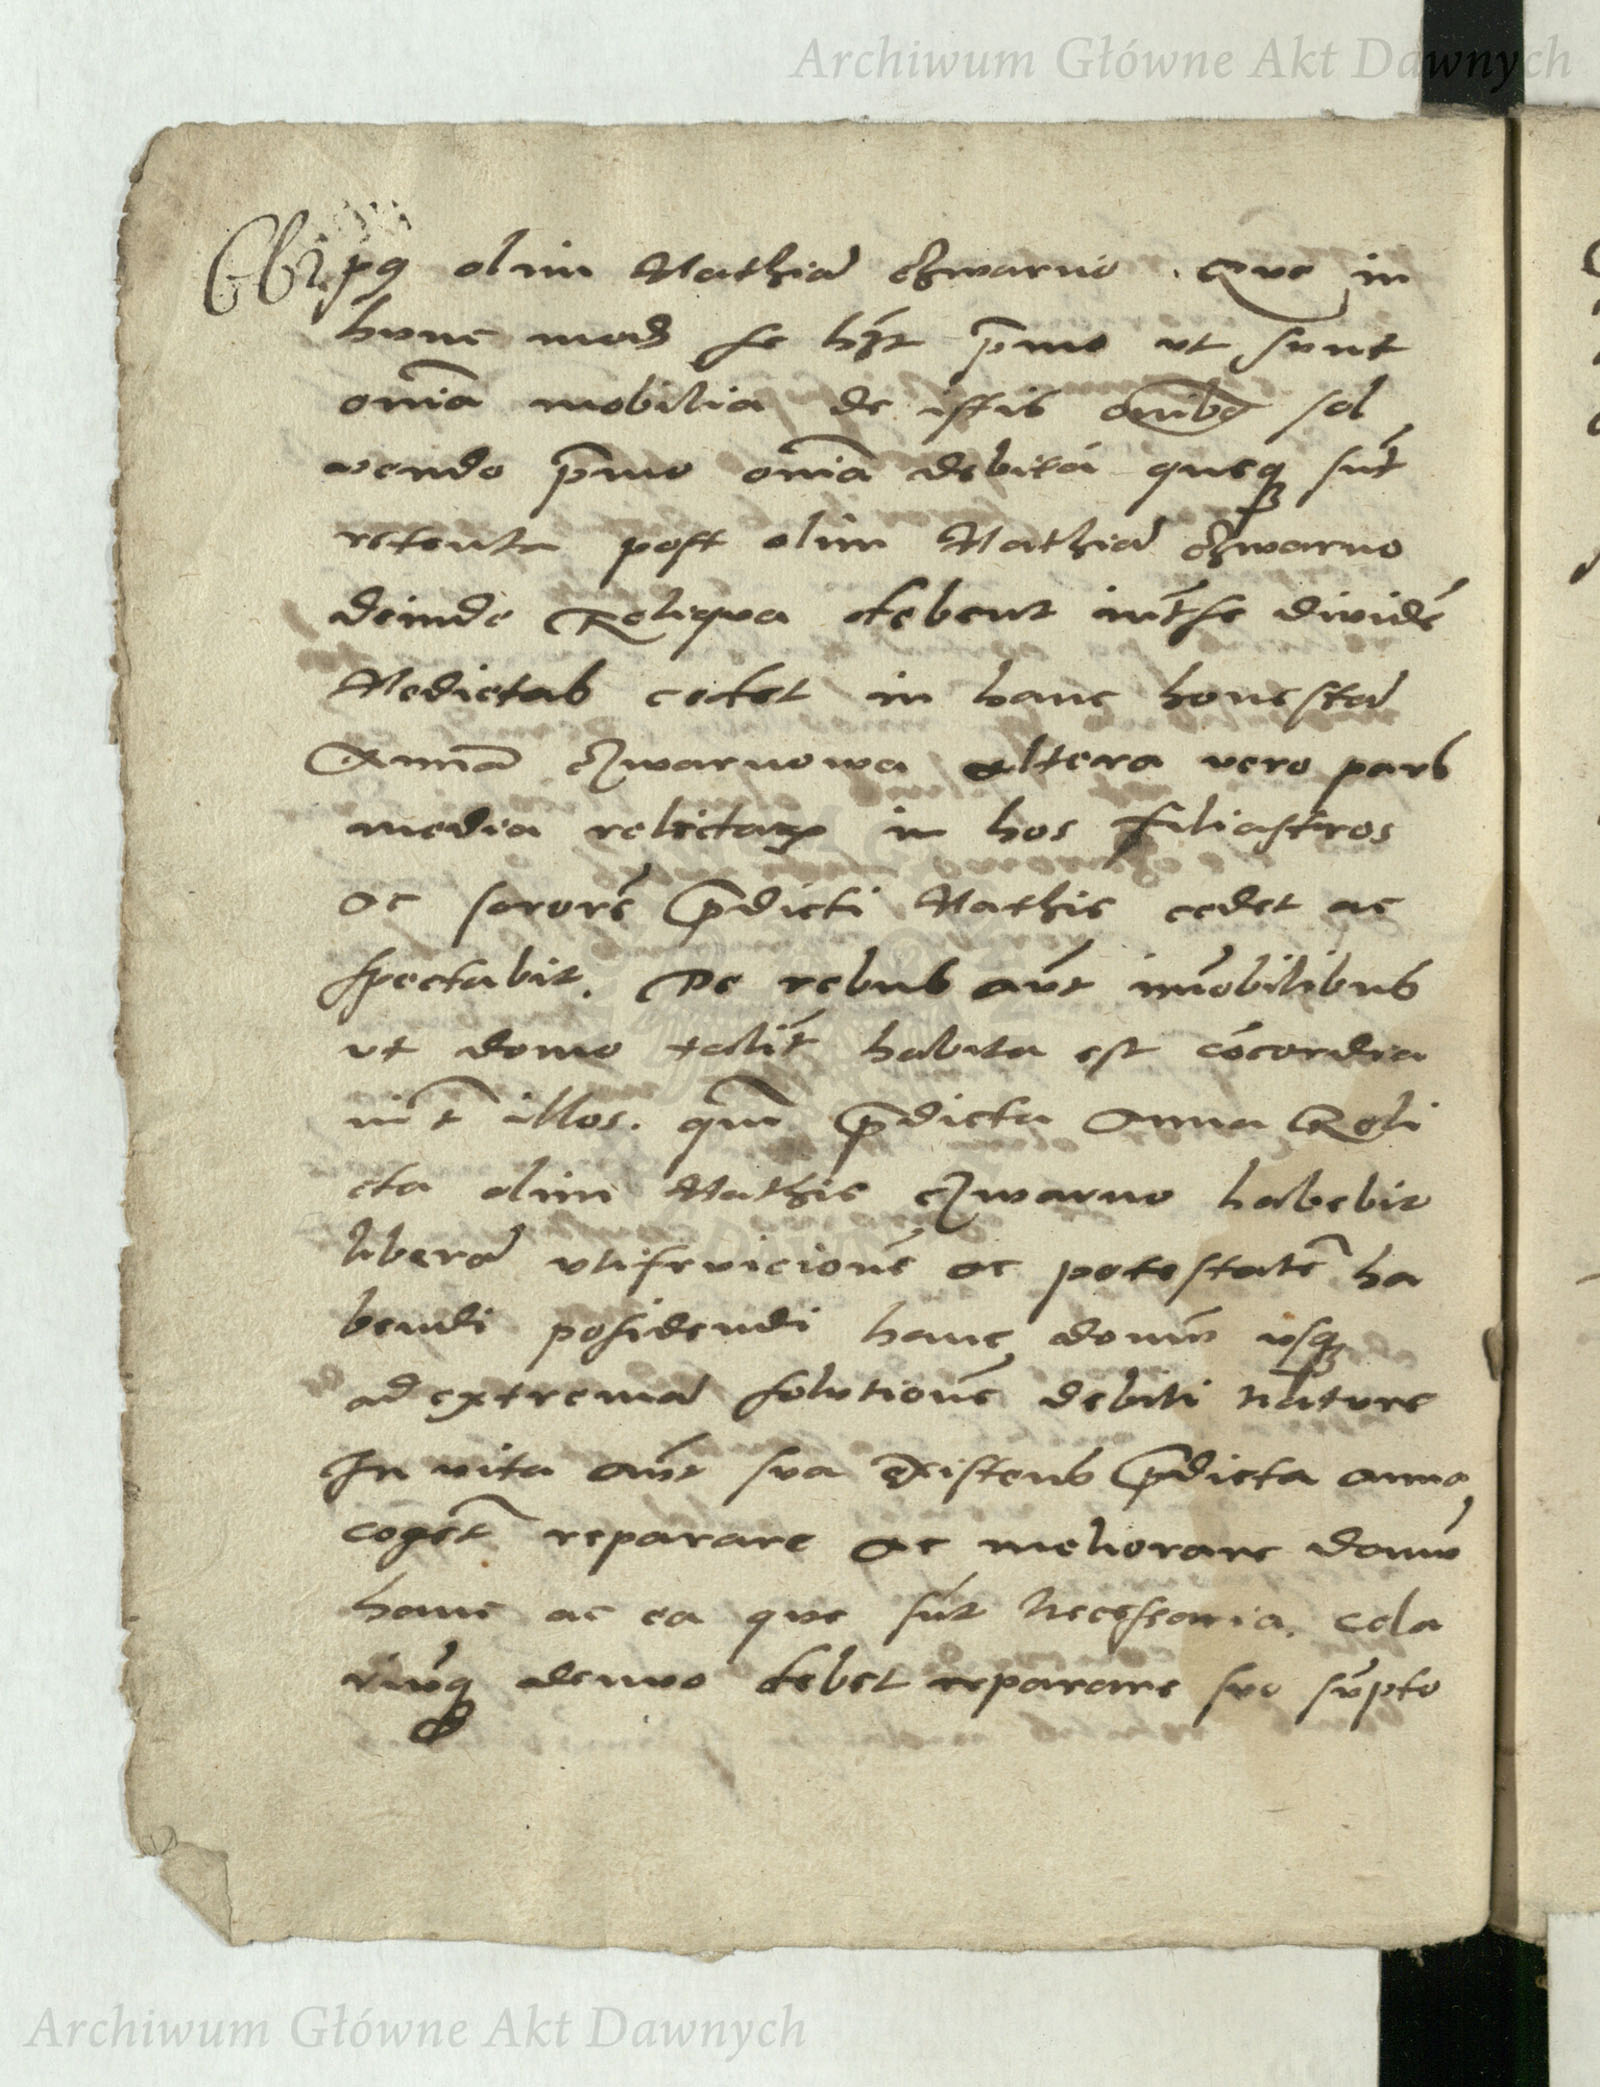 Archiwum Główne Akt Dawnych
olim Mathia᷉ Czwarno. Que in
hunc mod se hn̄t pmo ut sunt
om̄ia mobilia de istis om̄ibꝰ sol
vendo pmo om̄ia debita queqꝫ sūt
retenta post olim Mathia᷉ Czwarno
deinde Reliqua debent int̄ se dividē
Medietas cedet in hanc honesta᷉
Annā Czwarnowa altera vero pars
media relictaꝝ in hos filiastros
ac sororē p̄dicti Mathie cedet ac
spectabit. De rebus aūt im̄obilibus
ut domo talit̄ habita est cōcordia
int̄ illos. qm̄ p̄dicta Anna Reli
cta olim Mathie Czwarno habebit
libera᷉ utifruicionē ac potestatē ha
bendi posidendi hanc domū usqꝫ
ad extrema᷉ solutionē debiti nature
In vita aūt sua existens p̄dicta anna
coget̄ reparare ac meliorare domū
hanc ac ea que sūt necessaria. cela
riūqꝫ denuo debet reparare suo sūpto
Archiwum Główne Akt Dawnych